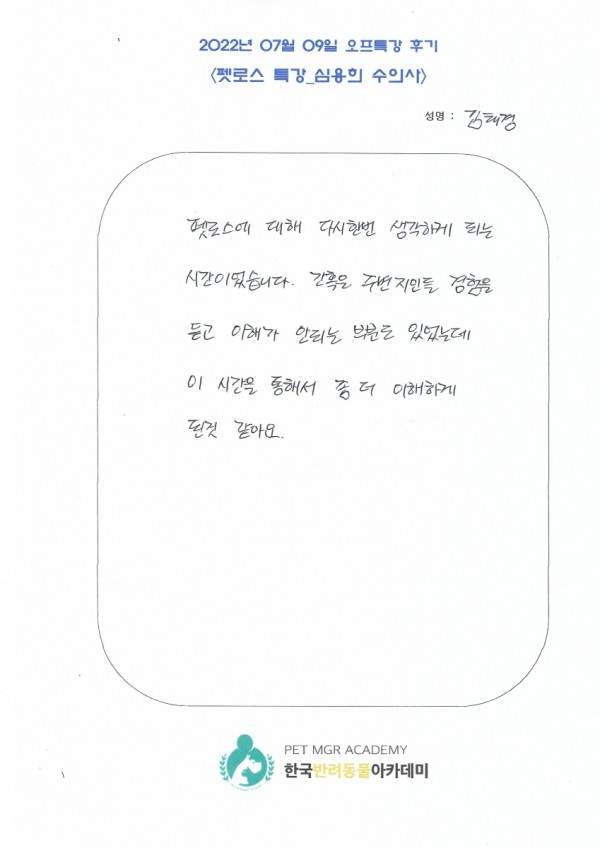 2022년 07월 09일 오프특강 후기
<펫로스 특강_심용희 수의사>
성명 : 김태경
펫로스에 대해 다시한번 생각하게 되는
시간이었습니다. 간혹은 주변지인들 경험을
듣고 이해가 안되는 부분도 있었는데
이 시간을 통해서 좀 더 이해하게
된것 같아요.
PET MGR ACADEMY
한국반려동물아카데미